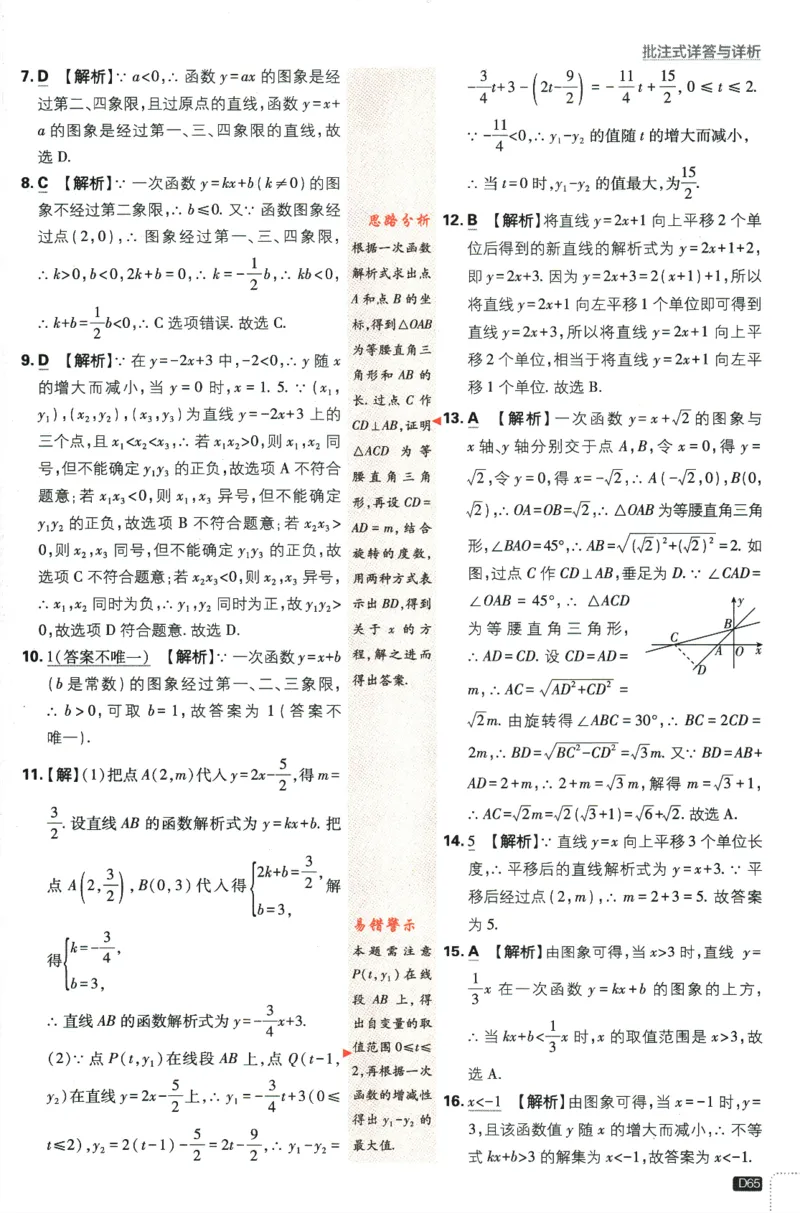 批注式详答与详析
7. D 【解析】∵ a<0,∴ 函数 y=ax 的图象是经
过第二、四象限,且过原点的直线,函数 y=x+
a 的图象是经过第一、三、四象限的直线,故
选 D.
8. C 【解析】∵ 一次函数 y=kx+b(k≠0)的图
象不经过第二象限,∴ b≤0. 又∵ 函数图象经
过点(2,0),∴ 图象经过第一、三、四象限,
∴ k>0,b<0,2k+b=0,∴ k=-1/2b,∴ kb<0,
∴ k+b=1/2b<0,∴ C 选项错误. 故选 C.
9. D 【解析】∵ 在 y=-2x+3 中,-2<0,∴ y 随 x
的增大而减小,当 y=0 时,x=1.5. ∵ (x₁,
y₁),(x₂,y₂),(x₃,y₃)为直线 y=-2x+3 上的
三个点,且 x₁<x₂<x₃,∴ 若 x₁x₂>0,则 x₁,x₂ 同
号,但不能确定 y₁y₃ 的正负,故选项 A 不符合
题意;若 x₁x₃<0,则 x₁,x₃ 异号,但不能确定
y₁y₂ 的正负,故选项 B 不符合题意;若 x₂x₃>
0,则 x₂,x₃ 同号,但不能确定 y₁y₃ 的正负,故
选项 C 不符合题意;若 x₂x₃<0,则 x₂,x₃ 异号,
∴ x₁,x₂ 同时为负,∴ y₁,y₂ 同时为正,故 y₁y₂>
0,故选项 D 符合题意. 故选 D.
10. 1(答案不唯一) 【解析】∵ 一次函数 y=x+b
(b 是常数)的图象经过第一、二、三象限,
∴ b>0,可取 b=1,故答案为 1(答案不
唯一).
11.【解】(1)把点 A(2,m)代入 y=2x-5/2,得 m=
3/2. 设直线 AB 的函数解析式为 y=kx+b. 把
点 A(2,3/2),B(0,3)代入得{2k+b=3/2, b=3, 解
得{k=-3/4, b=3,
∴ 直线 AB 的函数解析式为 y=-3/4x+3.
(2)∵ 点 P(t,y₁)在线段 AB 上,点 Q(t-1,
y₂)在直线 y=2x-5/2上,∴ y₁=-3/4t+3(0≤
t≤2),y₂=2(t-1)-5/2=2t-9/2,∴ y₁-y₂=
思路分析
根据一次函数
解析式求出点
A 和点 B 的坐
标,得到△OAB
为等腰直角三
角形和 AB 的
长. 过点 C 作
CD⊥AB,证明
△ACD 为等
腰直角三角
形,再设 CD=
AD=m,结合
旋转的度数,
用两种方式表
示出 BD,得到
关于 x 的方
程,解之进而
得出答案.
易错警示
本题需注意
P(t,y₁)在线
段 AB 上,得
出自变量的取
值范围 0≤t≤
2,再根据一次
函数的增减性
得出 y₁-y₂ 的
最大值.
-3/4t+3-(2t-9/2)=-11/4t+15/2,0≤t≤2.
∵ -11/4<0,∴ y₁-y₂ 的值随 t 的增大而减小,
∴ 当 t=0 时,y₁-y₂ 的值最大,为15/2.
12. B 【解析】将直线 y=2x+1 向上平移 2 个单
位后得到的新直线的解析式为 y=2x+1+2,
即 y=2x+3. 因为 y=2x+3=2(x+1)+1,所以
将直线 y=2x+1 向左平移 1 个单位即可得到
直线 y=2x+3,所以将直线 y=2x+1 向上平
移 2 个单位,相当于将直线 y=2x+1 向左平
移 1 个单位. 故选 B.
13. A 【解析】一次函数 y=x+√2 的图象与
x 轴、y 轴分别交于点 A,B,令 x=0,得 y=
√2,令 y=0,得 x=-√2,∴ A(-√2,0),B(0,
√2),∴ OA=OB=√2,∴ △OAB 为等腰直角三角
形,∠BAO=45°,∴ AB=√((√2)²+(√2)²)=2. 如
图,过点 C 作 CD⊥AB,垂足为 D. ∵ ∠CAD=
∠OAB=45°,∴ △ACD
为等腰直角三角形,
∴ AD=CD. 设 CD=AD=
y
B
C
A
O
x
D
m,∴ AC=√(AD²+CD²)=
√2m. 由旋转得∠ABC=30°,∴ BC=2CD=
2m,∴ BD=√(BC²-CD²)=√3m. 又∵ BD=AB+
AD=2+m,∴ 2+m=√3m,解得 m=√3+1,
∴ AC=√2m=√2(√3+1)=√6+√2. 故选 A.
14. 5 【解析】∵ 直线 y=x 向上平移 3 个单位长
度,∴ 平移后的直线解析式为 y=x+3. ∵ 平
移后经过点(2,m),∴ m=2+3=5. 故答案
为 5.
15. A 【解析】由图象可得,当 x>3 时,直线 y=
1/3x 在一次函数 y=kx+b 的图象的上方,
∴ 当 kx+b<1/3x 时,x 的取值范围是 x>3,故
选 A.
16. x<-1 【解析】由图象可得,当 x=-1 时,y=
3,且该函数值 y 随 x 的增大而减小,∴ 不等
式 kx+b>3 的解集为 x<-1,故答案为 x<-1.
D65